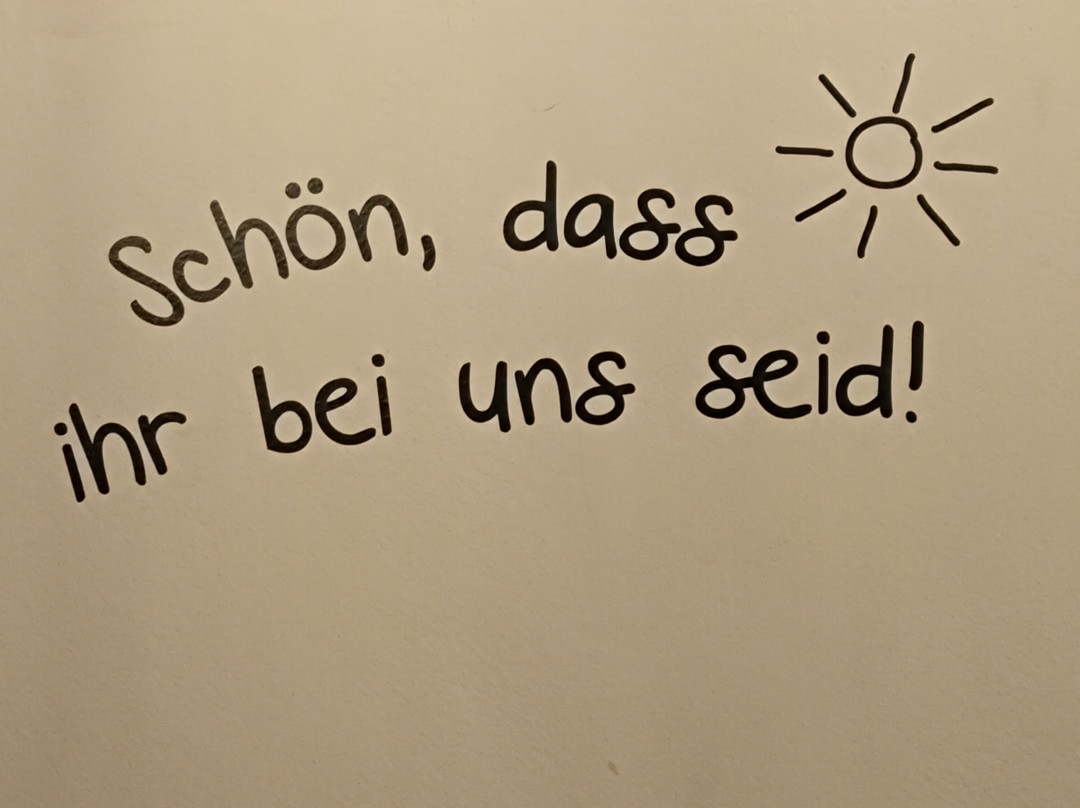 Schön, dass
ihr bei uns seid!